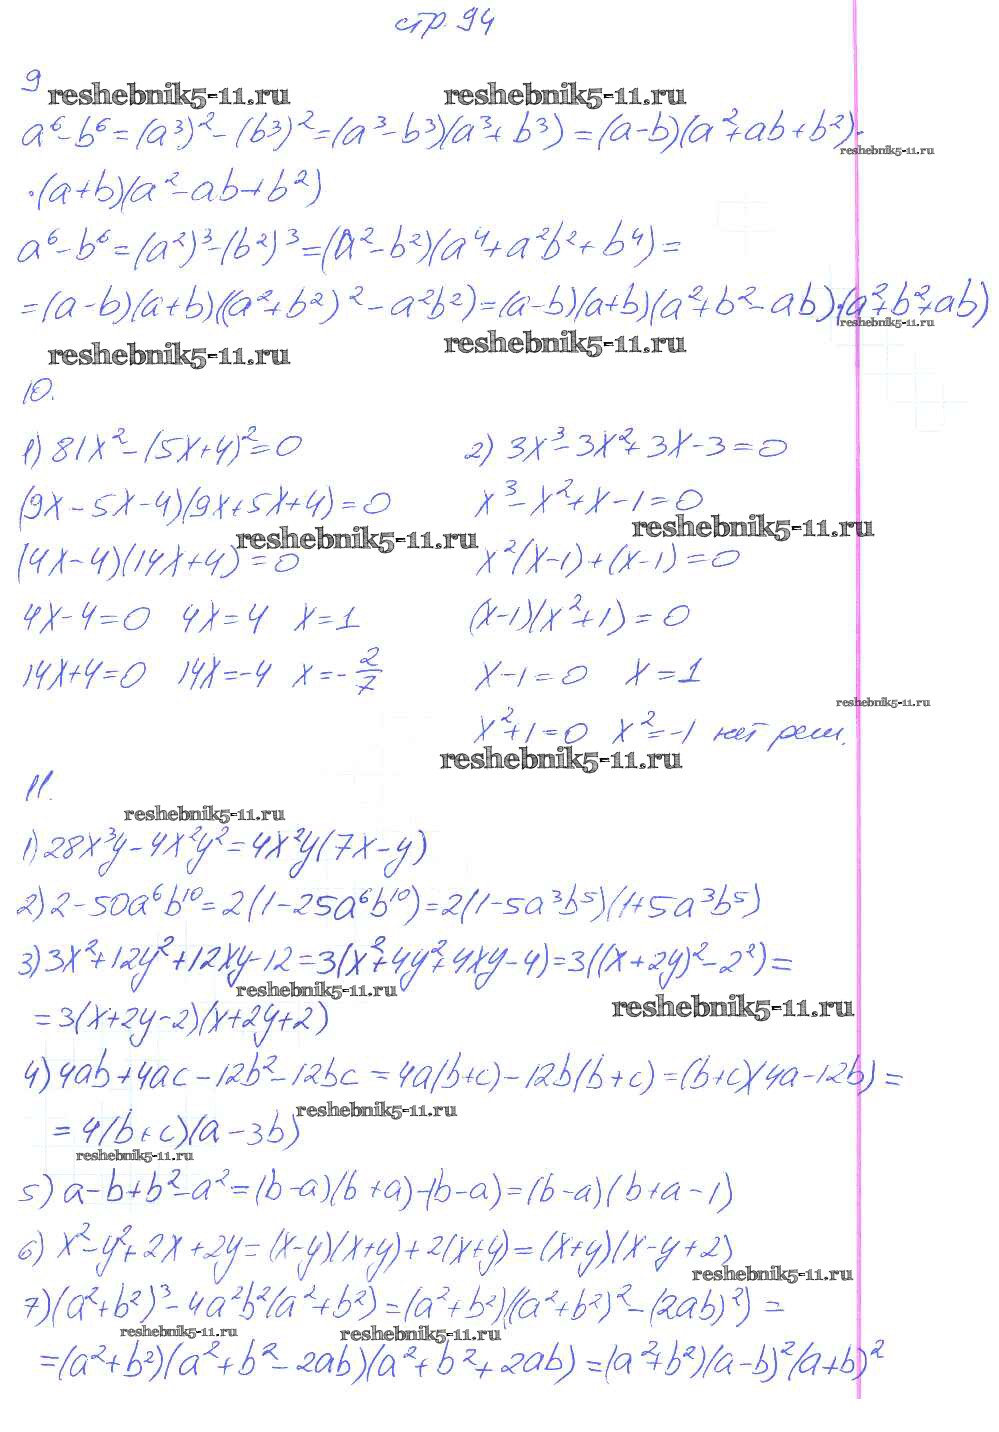 стр. 94
9
reshebnik5-11.ru reshebnik5-11.ru
a⁶-b⁶=(a³)²-(b³)²=(a³-b³)(a³+b³)=(a-b)(a²+ab+b²)·
reshebnik5-11.ru
·(a+b)(a²-ab+b²)
a⁶-b⁶=(a²)³-(b²)³=(a²-b²)(a⁴+a²b²+b⁴)=
=(a-b)(a+b)((a²+b²)²-a²b²)=(a-b)(a+b)(a²+b²-ab)·(a²+b²+ab)
reshebnik5-11.ru
reshebnik5-11.ru reshebnik5-11.ru
10.
1) 81x²-(5x+4)²=0 2) 3x³-3x²+3x-3=0
(9x-5x-4)(9x+5x+4)=0 x³-x²+x-1=0
reshebnik5-11.ru reshebnik5-11.ru
(4x-4)(14x+4)=0 x²(x-1)+(x-1)=0
4x-4=0 4x=4 x=1 (x-1)(x²+1)=0
14x+4=0 14x=-4 x=-2/7 x-1=0 x=1
reshebnik5-11.ru
x²+1=0 x²=-1 нет реш.
reshebnik5-11.ru
11.
reshebnik5-11.ru
1) 28x³y-4x²y²=4x²y(7x-y)
2) 2-50a⁶b¹⁰=2(1-25a⁶b¹⁰)=2(1-5a³b⁵)(1+5a³b⁵)
3) 3x²+12y²+12xy-12=3(x²+4y²+4xy-4)=3((x+2y)²-2²)=
reshebnik5-11.ru reshebnik5-11.ru
=3(x+2y-2)(x+2y+2)
4) 4ab+4ac-12b²-12bc=4a(b+c)-12b(b+c)=(b+c)(4a-12b)=
reshebnik5-11.ru
=4(b+c)(a-3b)
reshebnik5-11.ru
5) a-b+b²-a²=(b-a)(b+a)-(b-a)=(b-a)(b+a-1)
6) x²-y²+2x+2y=(x-y)(x+y)+2(x+y)=(x+y)(x-y+2)
reshebnik5-11.ru
7) (a²+b²)³-4a²b²(a²+b²)=(a²+b²)((a²+b²)²-(2ab)²)=
reshebnik5-11.ru reshebnik5-11.ru
=(a²+b²)(a²+b²-2ab)(a²+b²+2ab)=(a²+b²)(a-b)²(a+b)²